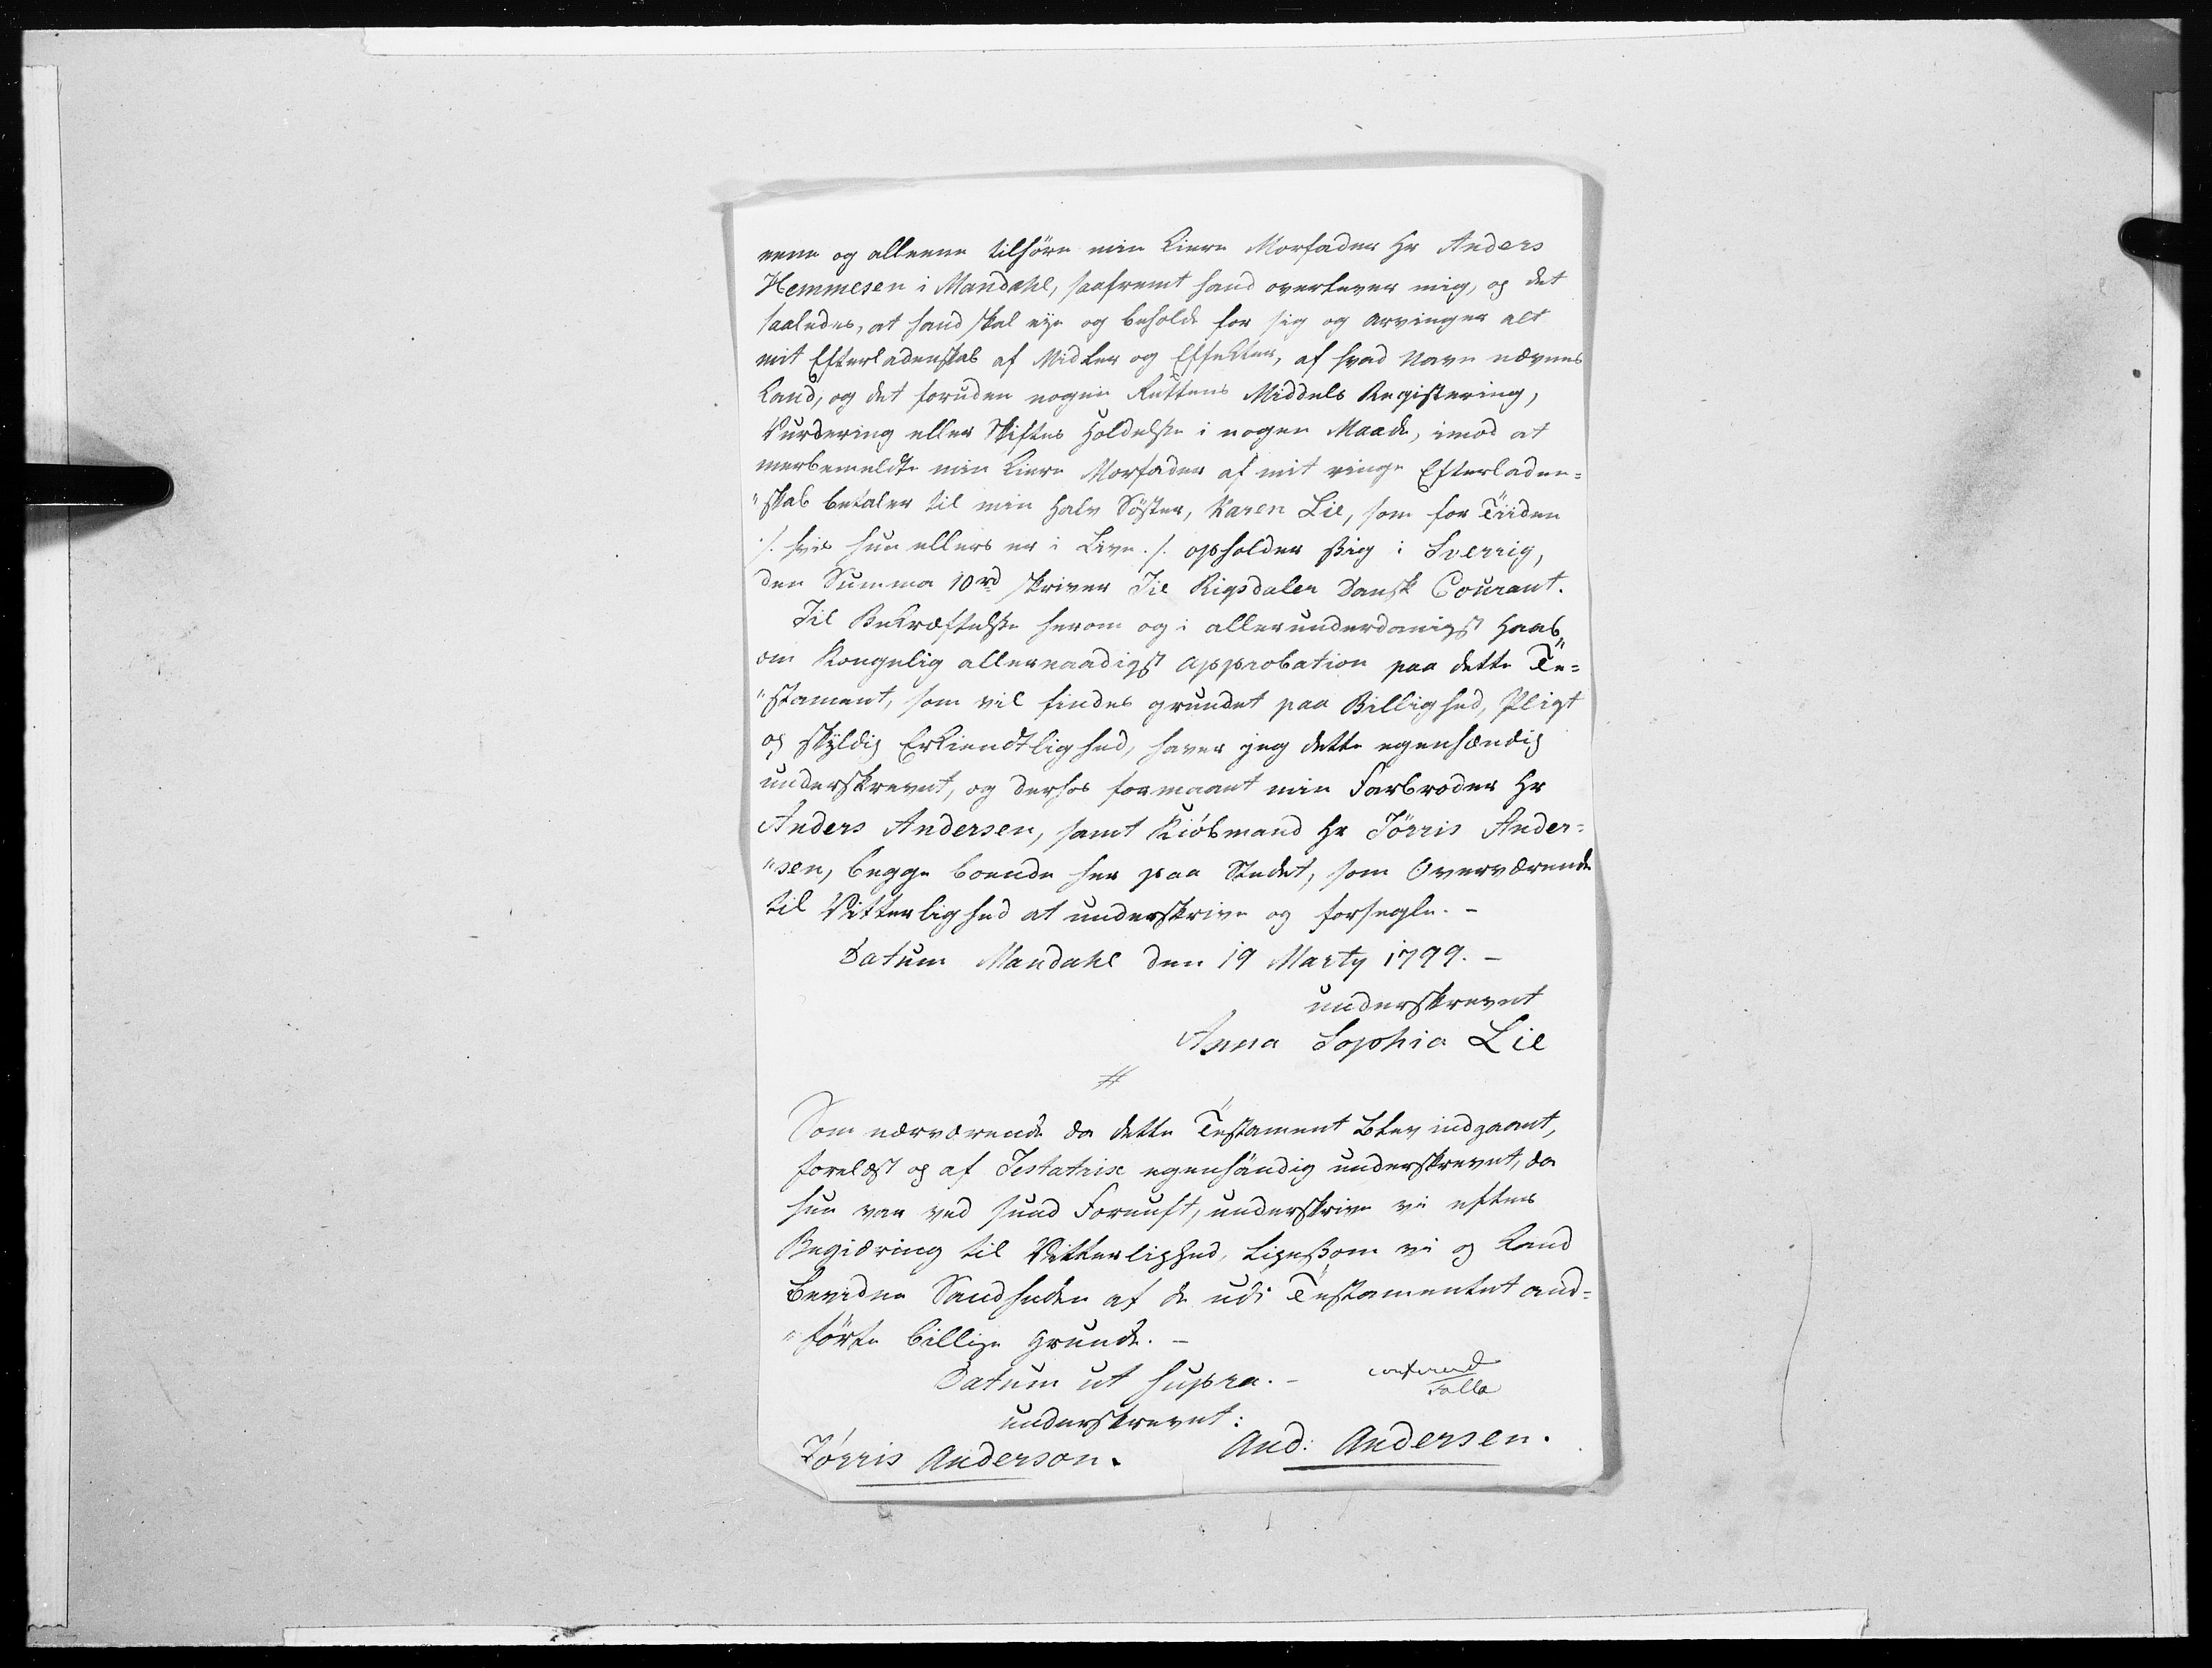 eene og alleene tilhöre min kiere Morfader Hr Anders
Hemmesen i Mandahl, saafremt hand overlever mig, og det
saaledes, at hand skal eye og beholde for sig og arvinger alt
mit Efterladenskab af Midler og Effekter, af hvad Navn nævnes
kand, og det foruden nogen Rettens Middels Registering,
Vurdering eller Skiftes Holdelse i nogen Maade, imod at
merbemeldte min kiere Morfader af mit ringe Efterladen=
"skab betaler til min halv Söster, Karen Lie, som for Tiiden
./. hvis hun ellers er i Live ./. opholder sig i Sverrig,
den Summa 10 rd skriver Tie Rigsdaler Dansk Courant.
Til Bekræftelse herom og i allerunderdanigst Haab
om Kongelig allernaadigst approbation paa dette Te=
"stament, som vil findes grundet paa Billighed, Pligt
og skyldig Erkiendtlighed, haver jeg dette egenhændig
underskrevet, og derhos formaaet min Farbroder Hr
Anders Andersen, samt Kiöbmand Hr Törris Ander=
"sen, begge boende her paa Stedet, som Overværende
til Vitterlighed at underskrive og forsegle. -
Datum Mandahl den 19 Marty 1799. -
underskrevet
Anna Sophia Lie
#
Som nærværende da dette Testament blev indgaaet,
forelæst og af Testatrise egenhändig underskrevet, da
hun var ved sund Fornuft, underskrive vi efter
Begiæring til Vitterlighed, ligesom vi og kand
bevidne Sandheden af de udi Testamentet and=
"førte billige Grunde. -
Datum ut supra. -
underskrevet:
Törris Anderson. And: Andersen.